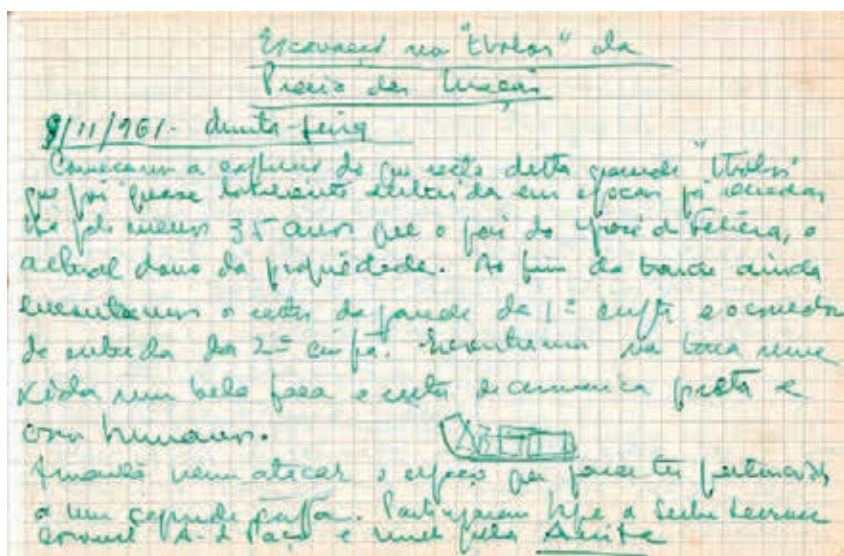 Escavação na "tholos" da
Praia das Maçãs
9/11/961 - quinta-feira
Começamos a explorar do que resta desta grande "tholos"
que foi quase totalmente destruída em épocas já
há pelo menos 35 anos que o foi do José da Felícia, o
actual dono da propriedade. Ao fim da tarde ainda
encontramos o resto da parede da 1ª cripta e o corredor
de entrada da 2ª cripta. Encontramos na terra reme
xida um bela faca e restos de ceramica preta e
ossos humanos.
Amanhã vamos atacar o espaço que parece ter pertencido
a um segunda cripta. Participaram hoje o Senhor
coronel A. do Paço e pela Anita